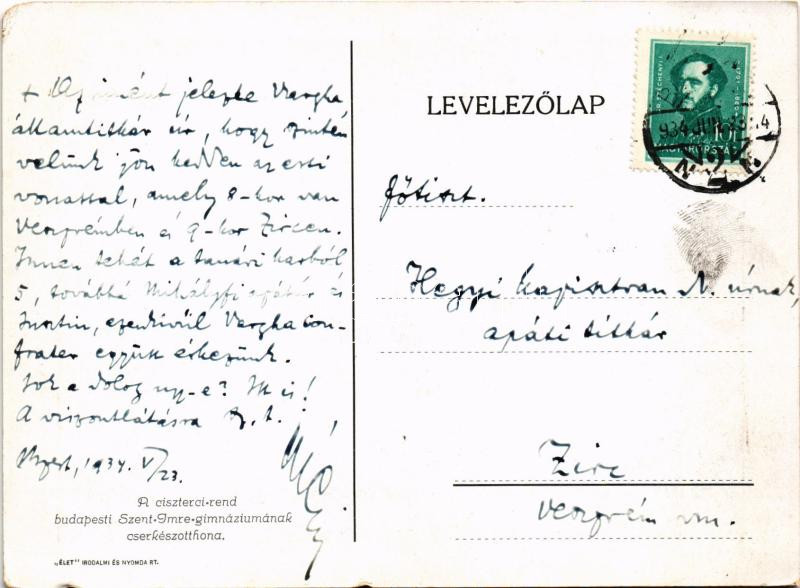 + Az imént jelezte Vargha
államtitkár úr, hogy szintén
velünk jön kedden az esti
vonattal, amely 8-kor van
Veszprémben és 9-kor Zircen.
Innen tehát a tanári karból
5, továbbá Mihályfi apátúr és
Jusztin, ezenkívül Vargha con-
frater együtt érkezünk.
Sok a dolog ugy-e? Itt is!
A viszontlátásra
1934. V/23.
A ciszterci-rend
budapesti Szent-Imre-gimnáziumának
cserkészotthona.
„ÉLET“ IRODALMI ÉS NYOMDA RT.
LEVELEZŐLAP
GR. SZÉCHENYI I.
1791-1860
10 f
MAGYARORSZÁG
934 JUN.
főtiszt.
Hegyi Kapisztrán N. úrnak,
apáti titkár
Zirc
Veszprém vm.